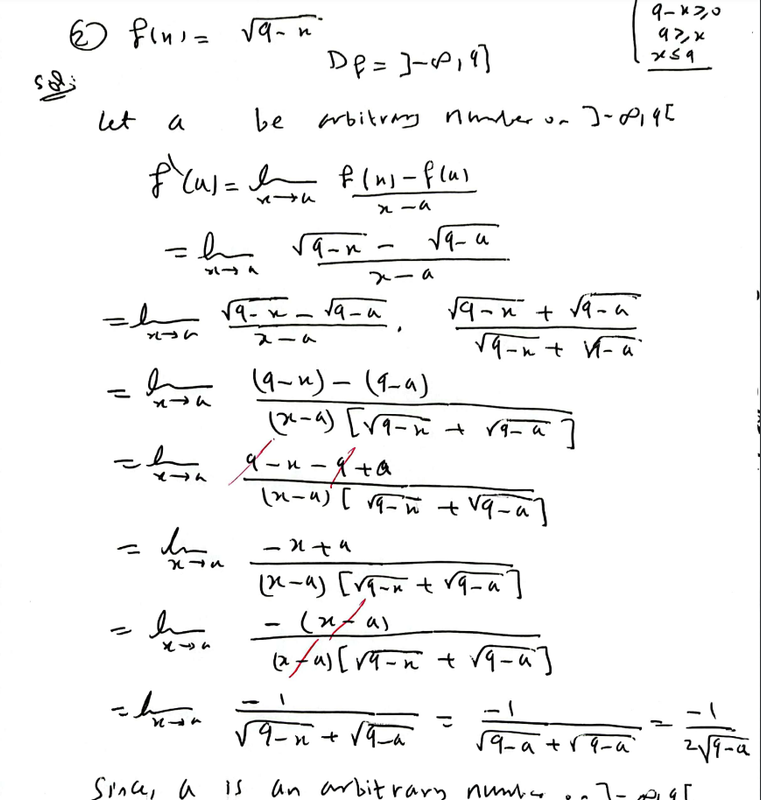 ② f(x) = √(9-x)
9-x ≥ 0
9 ≥ x
x ≤ 9
Df = ]-∞, 9]
Sol:
Let a be arbitrary number on ]-∞, 9[
f`(a) = lim x→a (f(x) - f(a)) / (x-a)
= lim x→a (√(9-x) - √(9-a)) / (x-a)
= lim x→a (√(9-x) - √(9-a)) / (x-a) . (√(9-x) + √(9-a)) / (√(9-x) + √(9-a))
= lim x→a ((9-x) - (9-a)) / ((x-a) [√(9-x) + √(9-a)])
= lim x→a (9-x-9+a) / ((x-a) [√(9-x) + √(9-a)])
= lim x→a (-x+a) / ((x-a) [√(9-x) + √(9-a)])
= lim x→a (-(x-a)) / ((x-a) [√(9-x) + √(9-a)])
= lim x→a (-1) / (√(9-x) + √(9-a)) = (-1) / (√(9-a) + √(9-a)) = (-1) / (2√(9-a))
Since, a is an arbitrary number on ]-∞, 9[